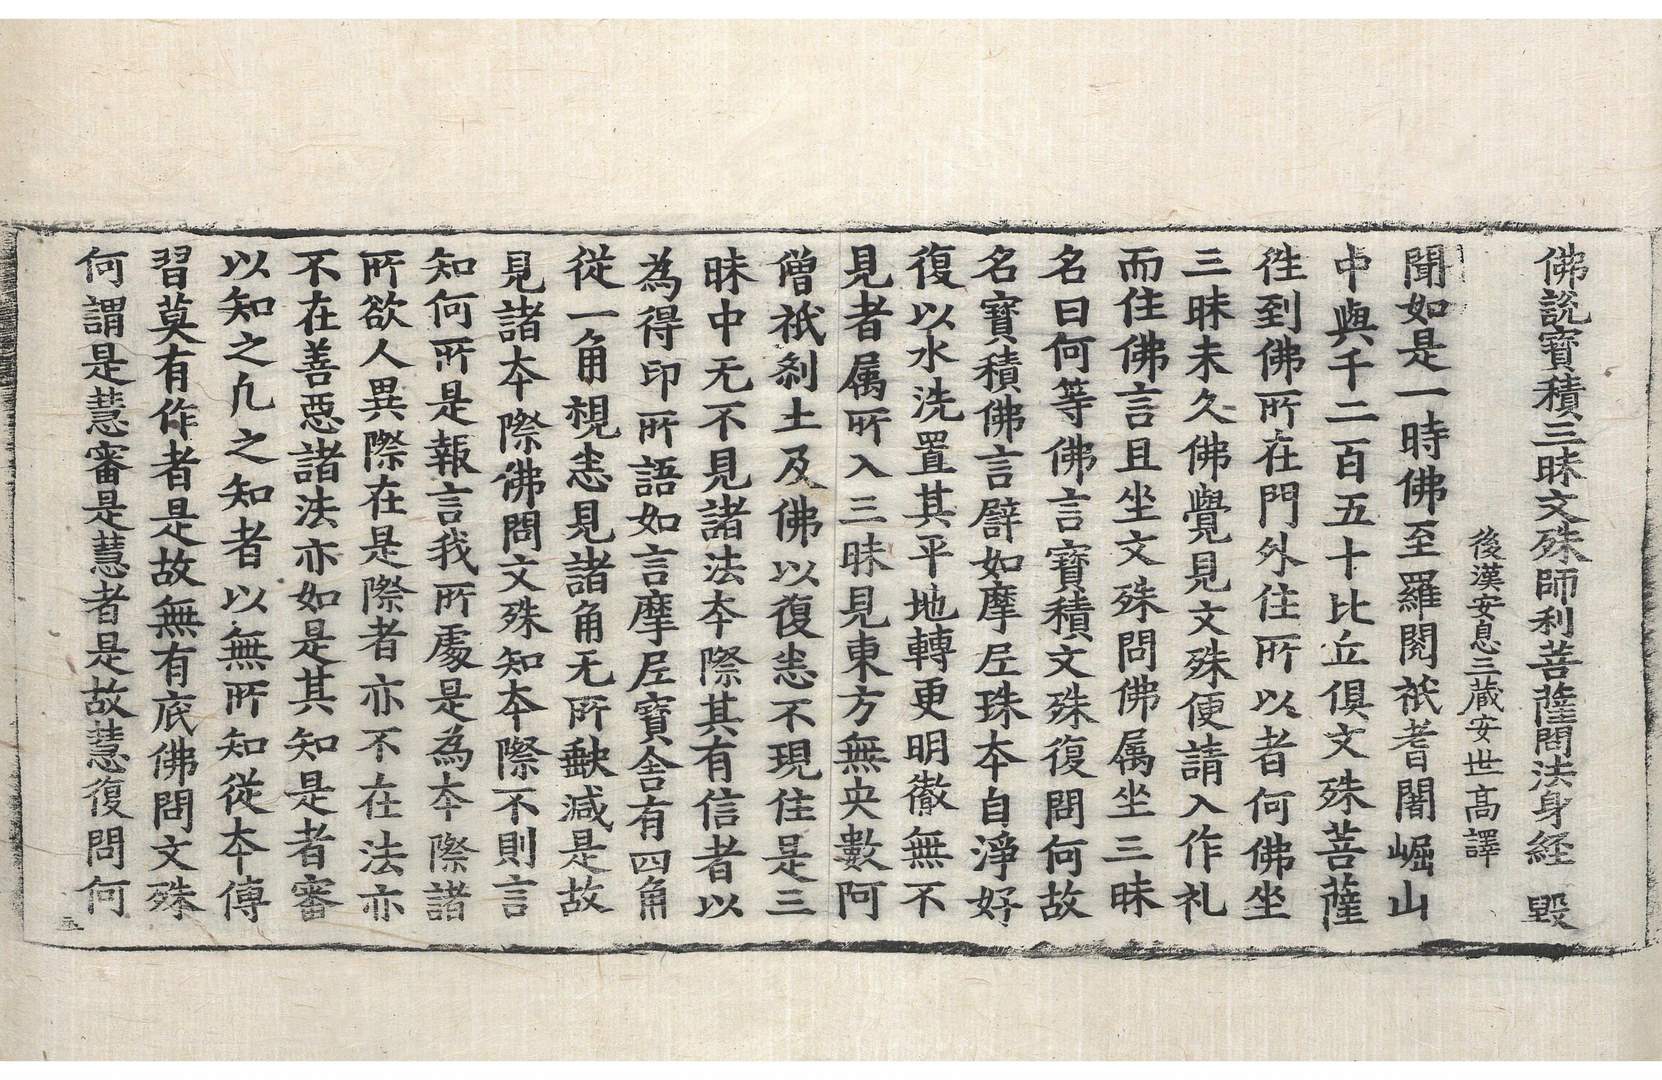 佛説寶積三昧文殊師利菩薩問法身經 毀
後漢安息三藏安世高譯
聞如是一時佛至羅閱祇耆闍崛山
中與千二百五十比丘俱文殊菩薩
徃到佛所在門外住所以者何佛坐
三昧未久佛覺見文殊便請入作礼
而住佛言且坐文殊問佛属坐三昧
名曰何等佛言寶積文殊復問何故
名寶積佛言譬如摩尼珠本自淨好
復以水洗置其平地轉更明徹無不
見者属所入三昧見東方無央數阿
僧祇剎土及佛以復恚不現住是三
昧中无不見諸法本際其有信者以
為得印所語如言摩尼寶舍有四角
從一角視恚見諸角无所缺减是故
見諸本際佛問文殊知本際不則言
知何所是報言我所處是為本際諸
所欲人異際在是際者亦不在法亦
不在善惡諸法亦如是其知是者審
以知之凡之知者以無所知從本傳
習莫有作者是故無有底佛問文殊
何謂是慧審是慧者是故慧復問何
五